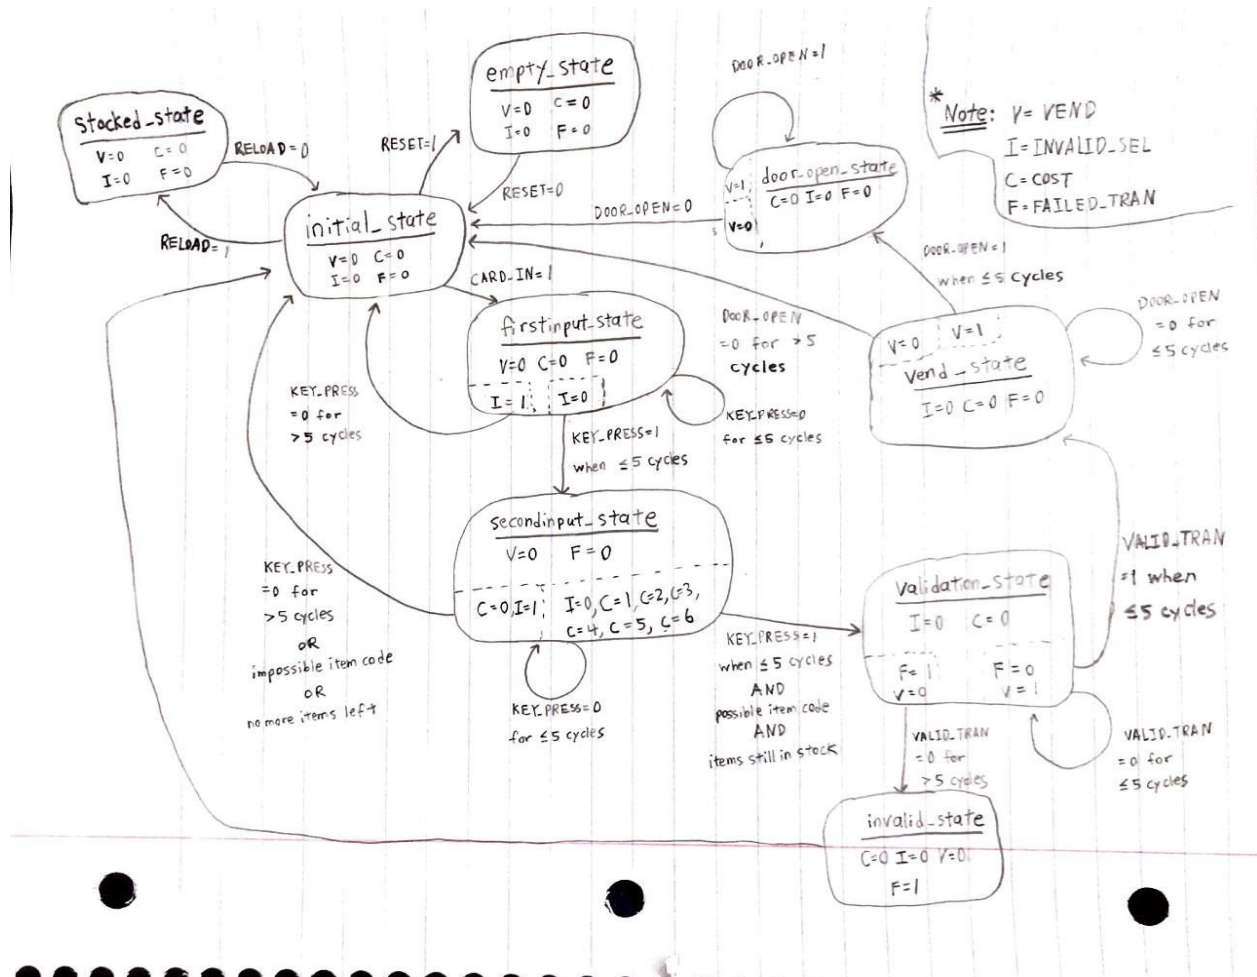 empty_state
V=0 C=0
I=0 F=0
DOOR_OPEN=1
* Note: V= VEND
I= INVALID_SEL
C= COST
F= FAILED_TRAN
Stocked_state
V=0 C=0
I=0 F=0
RELOAD=0
RELOAD=1
RESET=1
RESET=0
initial_state
V=0 C=0
I=0 F=0
V=1 door_open_state
C=0 I=0 F=0
V=0
DOOR_OPEN=0
DOOR_OPEN=1
when ≤5 cycles
CARD_IN=1
firstinput_state
V=0 C=0 F=0
I=1 I=0
DOOR_OPEN
=0 for >5
cycles
V=0 V=1
Vend_state
I=0 C=0 F=0
DOOR_OPEN
=0 for
≤5 cycles
KEY_PRESS
=0 for
>5 cycles
KEY_PRESS=0
for ≤5 cycles
KEY_PRESS=1
when ≤5 cycles
secondinput_state
V=0 F=0
C=0, I=1 I=0, C=1, C=2, C=3,
C=4, C=5, C=6
KEY_PRESS
=0 for
>5 cycles
OR
impossible item code
OR
no more items left
KEY_PRESS=0
for ≤5 cycles
KEY_PRESS=1
when ≤5 cycles
AND
possible item code
AND
items still in stock
Validation_state
I=0 C=0
F=1 F=0
V=0 V=1
VALID_TRAN
=1 when
≤5 cycles
VALID_TRAN
=0 for
>5 cycles
VALID_TRAN
=0 for
≤5 cycles
invalid_state
C=0 I=0 V=0
F=1